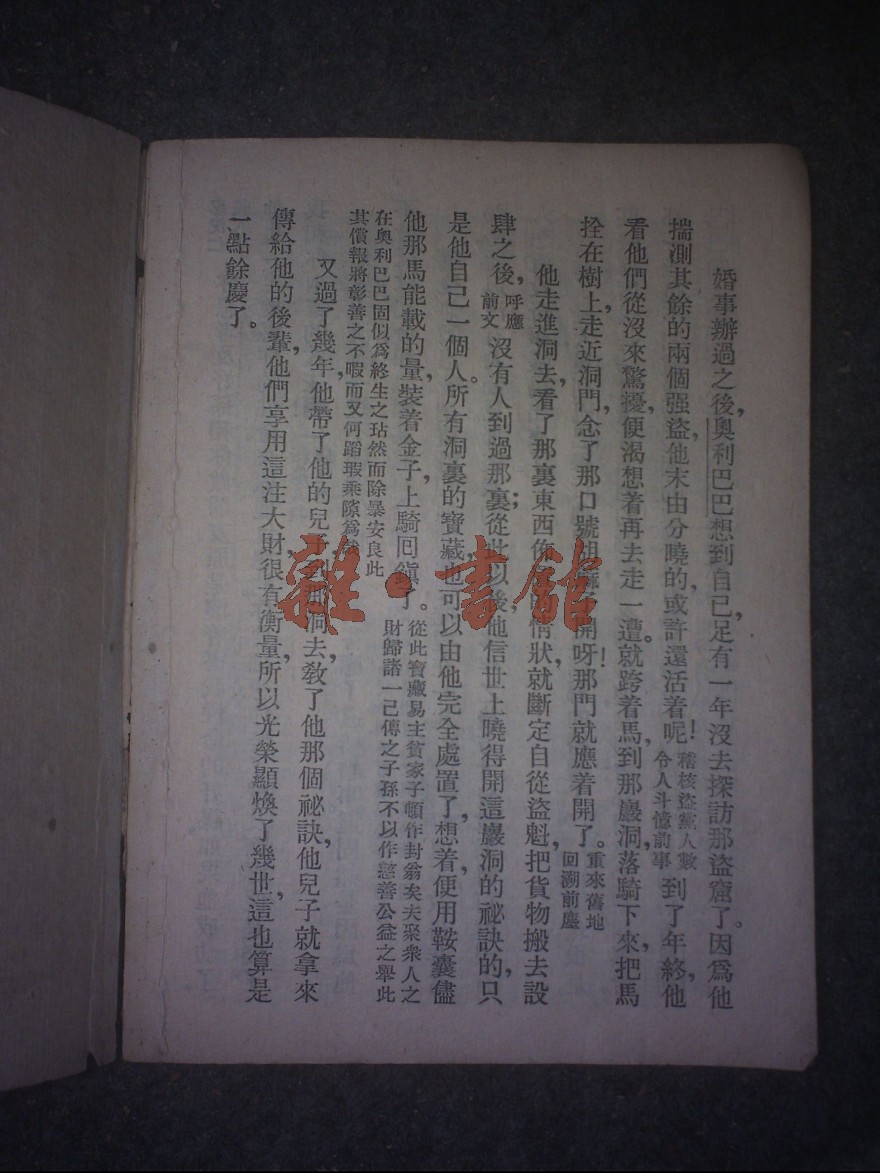 婚事辦過之後，奧利巴巴想到自己足有一年沒去探訪那盜窟了。因爲他
揣測其餘的兩個强盜，他未由分曉的，或許還活着呢！稽核盜黨人數令人斗憶前事到了年終，他
看他們從沒來驚擾，便渴想着再去走一遭。就跨着馬，到那巖洞，落騎下來，把馬
拴在樹上，走近洞門，念了那口號胡麻子開呀！那門就應着開了。重來舊地回溯前塵
他走進洞去，看了那裏東西佈情狀，就斷定自從盜魁，把貨物搬去設
肆之後，呼應前文沒有人到過那裏；從此以後，他信世上曉得開這巖洞的祕訣的，只
是他自己一個人。所有洞裏的寶藏，也可以由他完全處置了，想着，便用鞍囊儘
他那馬能載的量，裝着金子，上騎回鎭了。從此寶藏易主貧家子頓作封翁矣夫聚衆人之
財歸諸一己傳之子孫不以作慈善公益之舉此
在奧利巴巴固似爲終生之玷然而除暴安良此
其償報將彰善之不暇而又何蹈瑕乘隙爲哉
又過了幾年，他帶了他的兒子，到那洞去，敎了他那個祕訣，他兒子就拿來
傳給他的後輩，他們享用這注大財，很有衡量，所以光榮顯煥了幾世，這也算是
一點餘慶了。
雜·書館